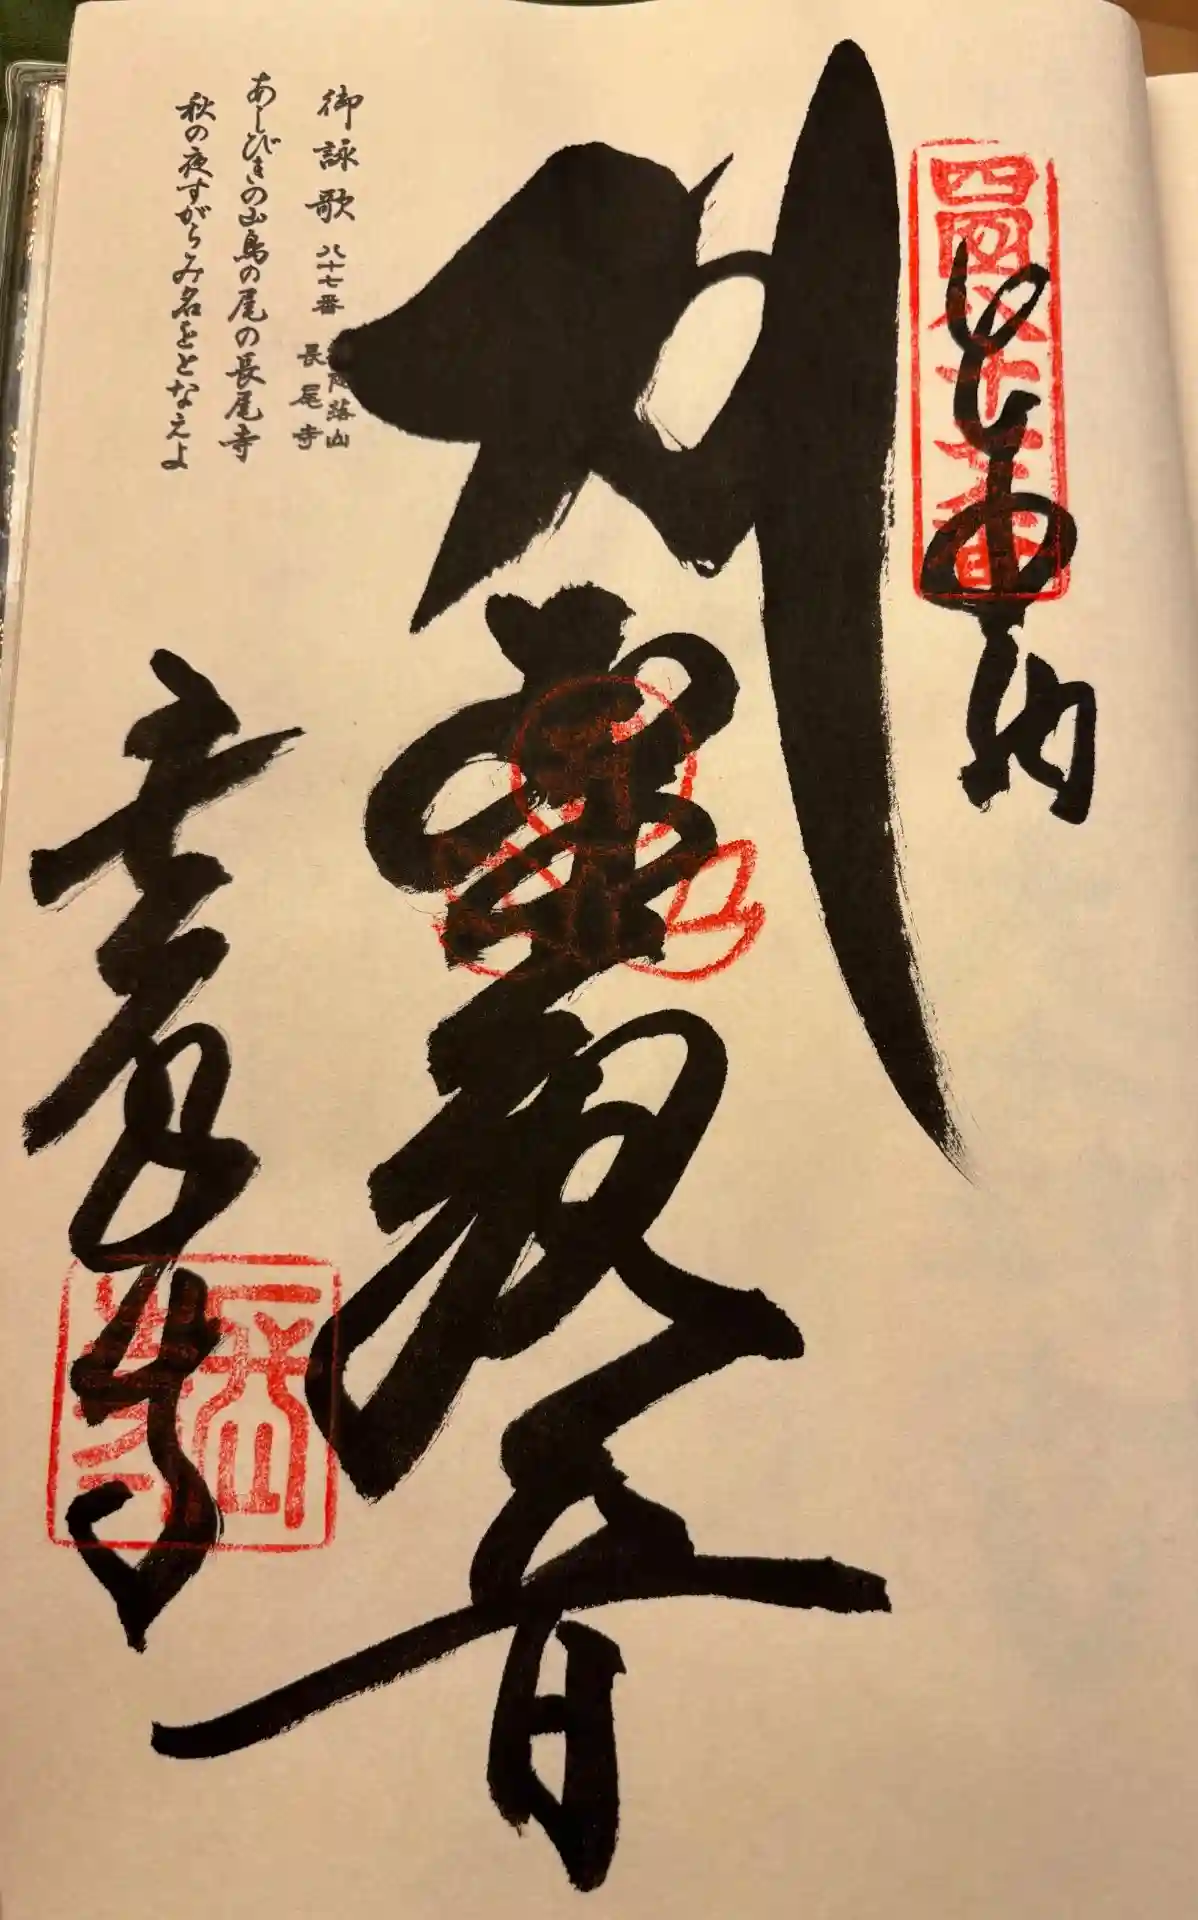 四國八十七番
奉納
聖観音
御詠歌 八十七番 補陀落山 長尾寺
あしびきの山鳥の尾の長尾寺
秋の夜すがらみ名をとなえよ
長尾寺